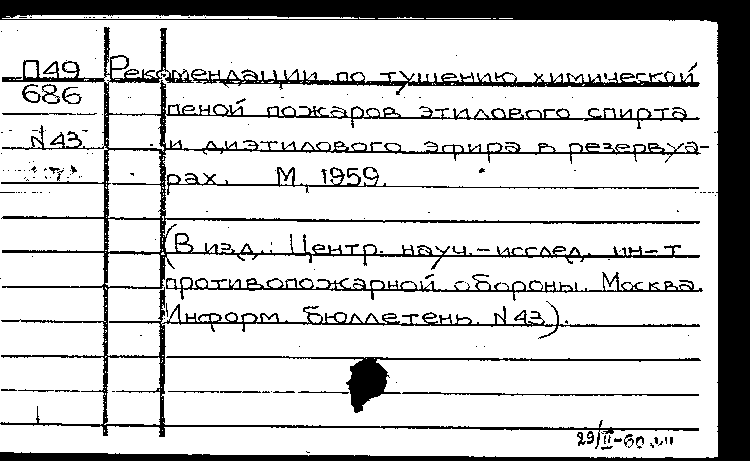 П49 Рекомендации по тушению химической
686 пеной пожаров этилового спирта
N43 и диэтилового эфира в резервуа-
рах. М., 1959.
(В изд.: Центр. науч.-исслед. ин-т
противопожарной обороны. Москва.
Информ. бюллетень. N43).
29/II-60